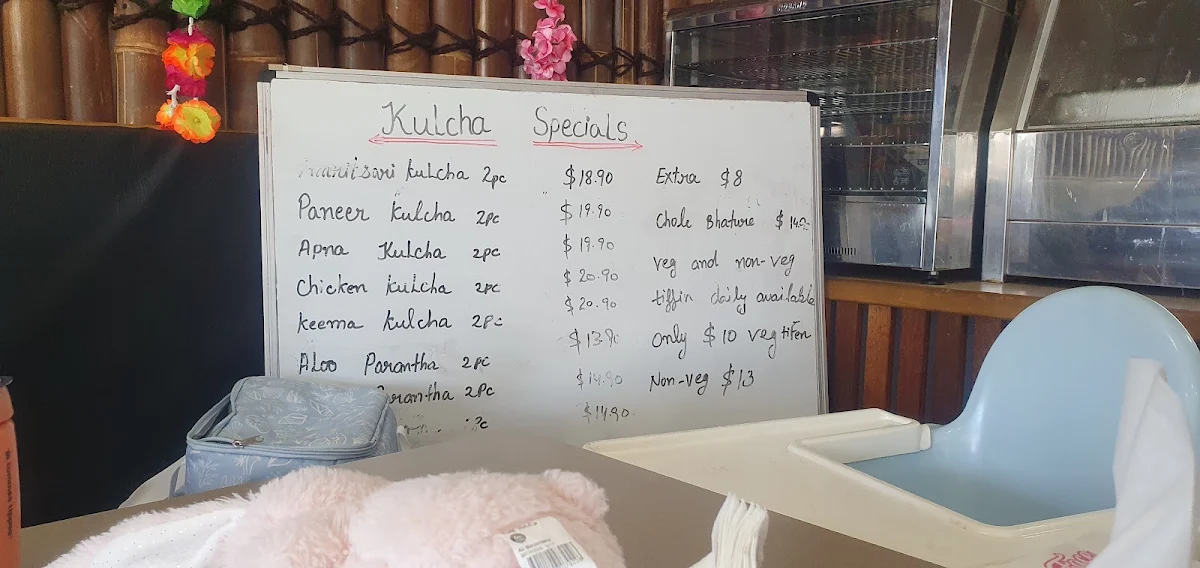 Kulcha Specials
kulcha 2pc $18.90
Paneer Kulcha 2pc $19.90
Apna Kulcha 2pc $19.90
Chicken kulcha 2pc $20.90
Keema Kulcha 2pc $20.90
Aloo Parantha 2pc $13.90
2pc $14.90
$14.90
Extra $8
Chole Bhature
veg and non-veg
tiffin daily available
only $10 veg tifen
Non-veg $13